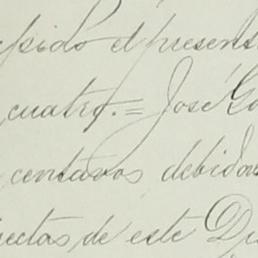 espido el present
cuatro.= José Go
centavos debida
rectas de este Di